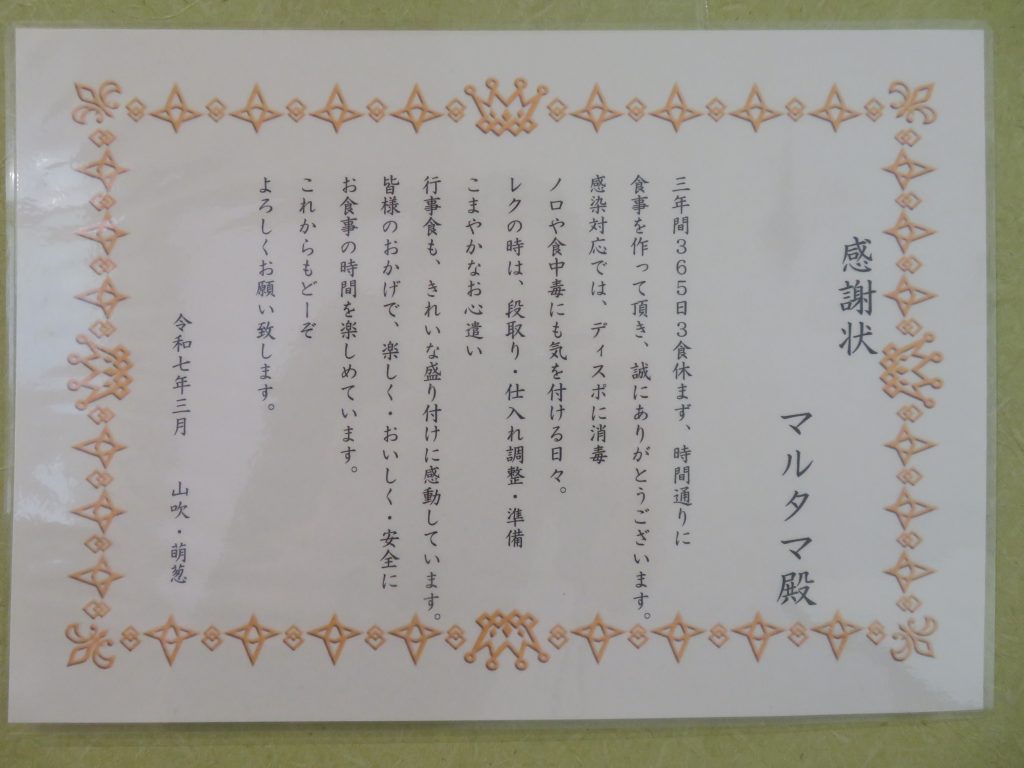 感謝状
マルタマ殿
三年間365日3食休まず、時間通りに
食事を作って頂き、誠にありがとうございます。
感染対応では、ディスポに消毒
ノロや食中毒にも気を付ける日々。
レクの時は、段取り・仕入れ調整・準備
こまやかなお心遣い
行事食も、きれいな盛り付けに感動しています。
皆様のおかげで、楽しく・おいしく・安全に
お食事の時間を楽しめています。
これからもどーぞ
よろしくお願い致します。
令和七年三月　山吹・萌葱